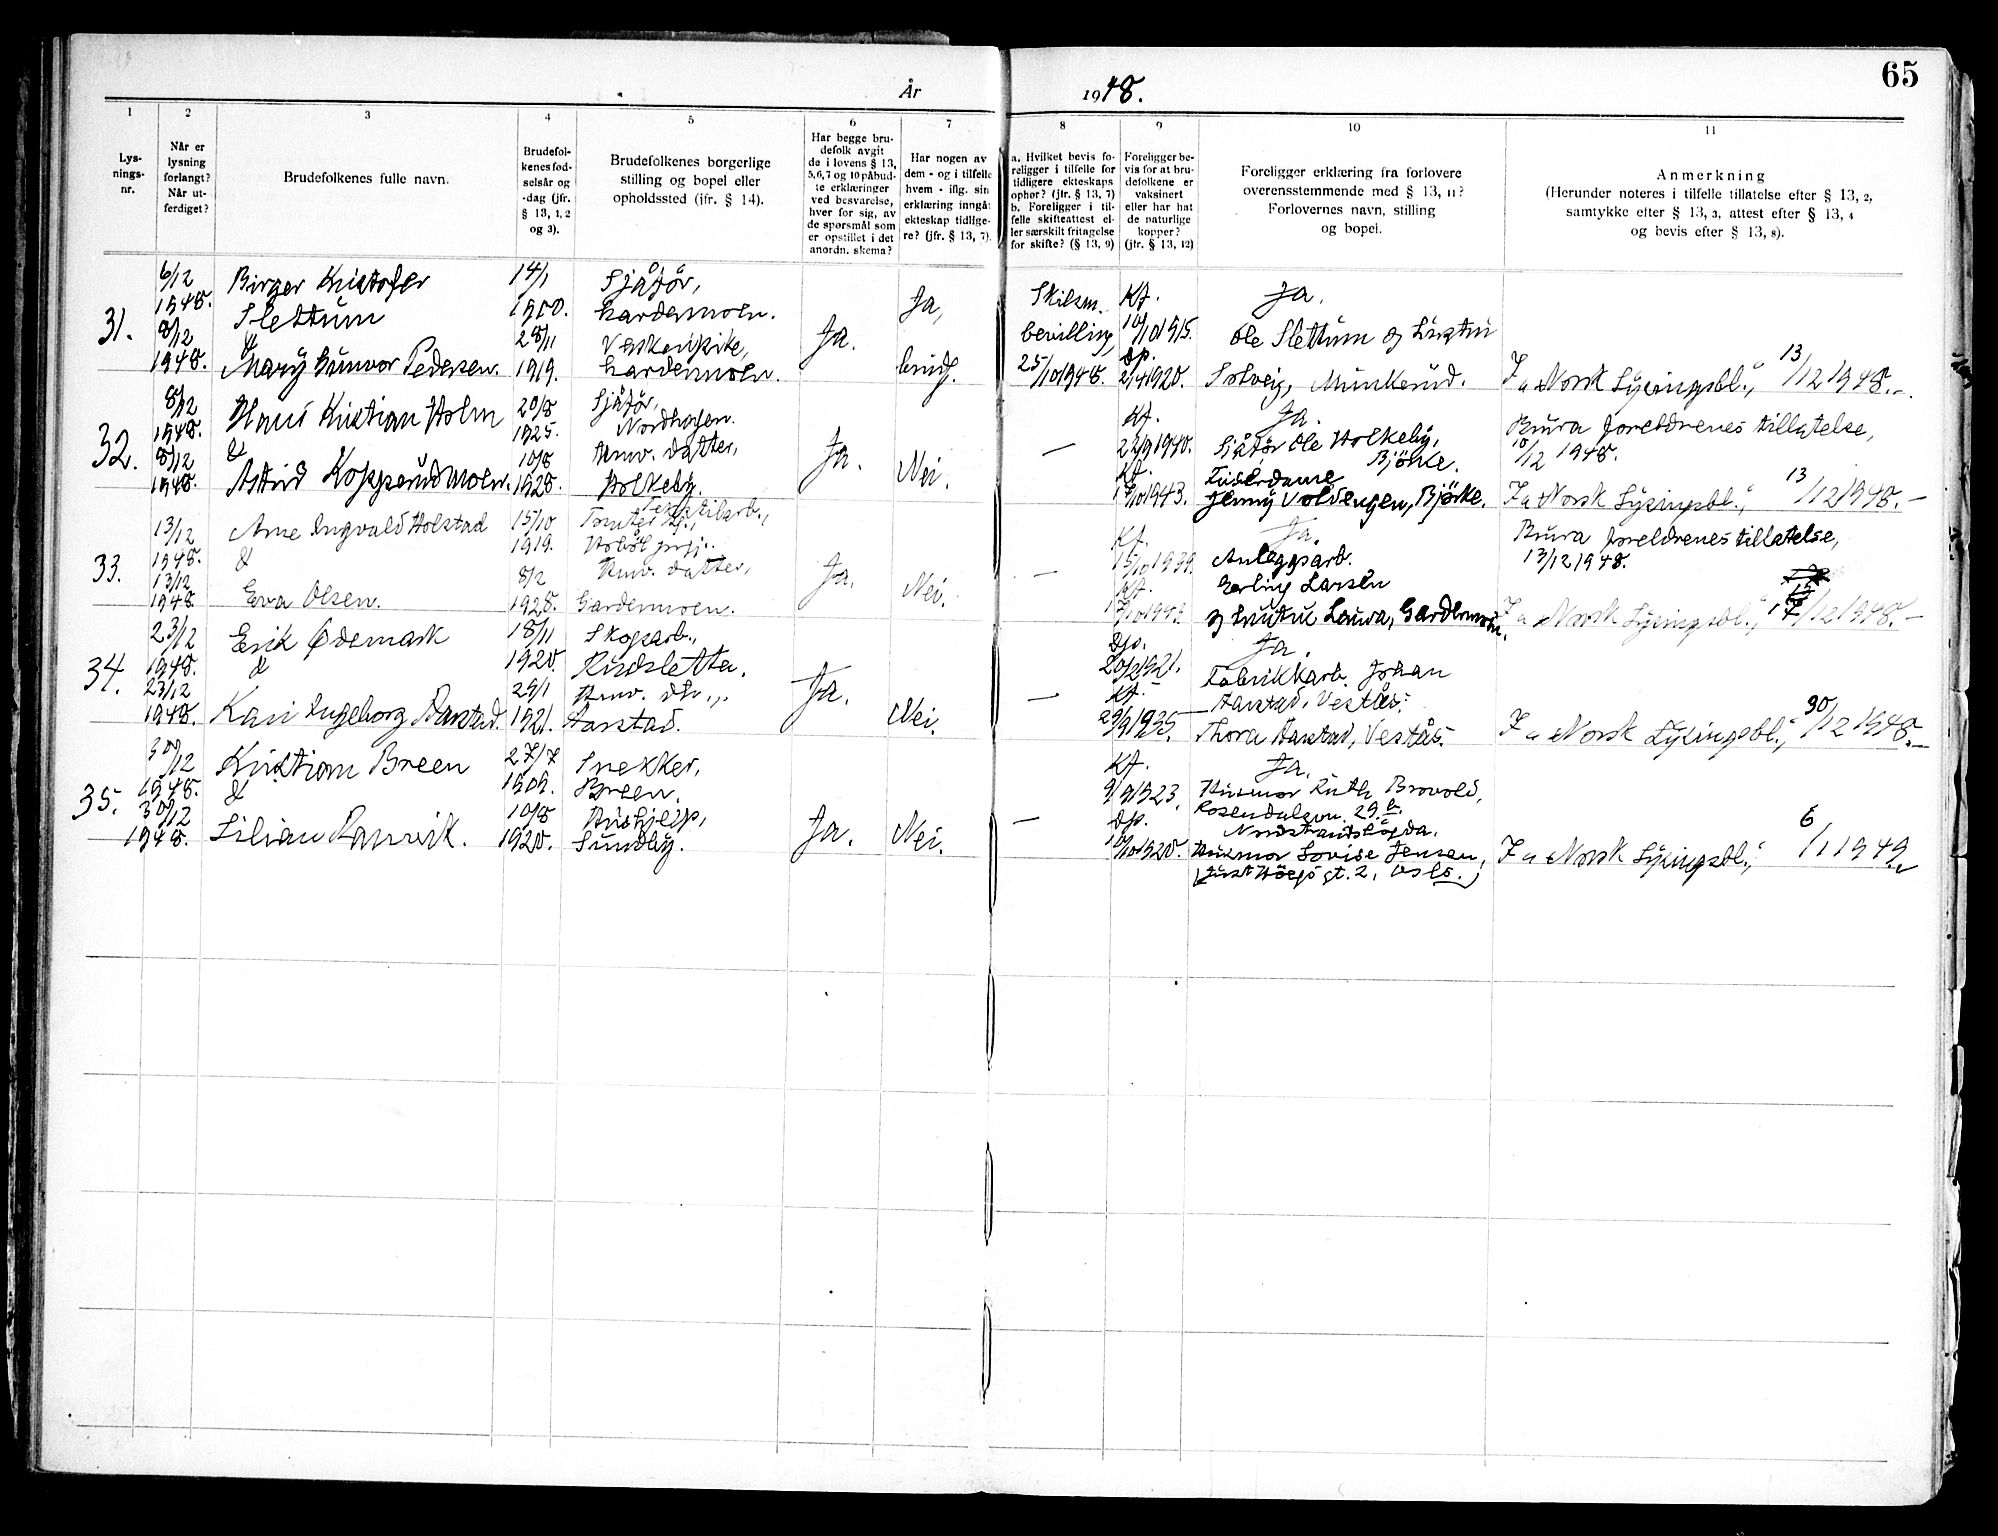 65
År
1948.
1
2
3
4
5
6
7
8
9
10
11
Lys-
nings-
nr.
Når er
lysning
forlangt?
Når ut-
ferdiget?
Brudefolkenes fulle navn.
Brudefol-
kenes fød-
selsår og
-dag (jfr.
§ 13, 1, 2
og 3).
Brudefolkenes borgerlige
stilling og bopel eller
opholdssted (jfr. § 14).
Har begge bru-
defolk avgit
de i lovens § 13,
5, 6, 7 og 10 påbud-
te erklæringer
ved besvarelse,
hver for sig, av
de spørsmål som
er opstillet i det
anordn. skema?
Har nogen av
dem - og i tilfelle
hvem - iflg. sin
erklæring inngått
ekteskap tidlige-
re? (jfr. § 13, 7).
a. Hvilket bevis fo-
religger i tilfelle for
tidligere ekteskaps
ophør? (jfr. § 13, 7)
b. Foreligger i til-
felle skifteattest el-
ler særskilt fritagelse
for skifte? (§ 13, 9)
Foreligger be-
vis for at bru-
defolkene er
vaksinert
eller har hat
de naturlige
kopper?
(jfr. § 13, 12)
Foreligger erklæring fra forlovere
overensstemmende med § 13, 11?
Forlovernes navn, stilling
og bopel.
Anmerkning
(Herunder noteres i tilfelle tillatelse efter § 13, 2,
samtykke efter § 13, 3, attest efter § 13, 4
og bevis efter § 13, 8).
31.
6/12
1948.
8/12
1948.
Birger Kristofer
Slettum
&
Mary Gunvor Pedersen.
14/1
1900.
28/11
1919.
Sjåfør,
Gardermoen.
Gardermoen.
Ja.
Ja,
brudg.
Skilsm.
bevilling,
25/10 1948.
Kf.
10/10 1915.
Dp.
2/4 1920.
Ja.
Ole Slettum og hustru
Solveig, Munkerud.
I „Norsk Lysingsbl.", 13/12 1948.-
32.
8/12
1948.
8/12
1948.
Hans Kristian Holm
&
Astrid Kopperudmoen.
20/8
1925.
10/8
1928.
Sjåfør,
Nordhagen.
Hmv. datter,
Holkeby.
Ja.
Nei.
—
Kf.
22/9 1940.
Kf.
1943.
Ja.
Sjåfør Ole Holkeby,
Bjørke.
Frisørdame
Jenny Voldengen, Bjørke.
Brura foreldrenes tillatelse,
10/12 1948.
I „Norsk Lysingsbl.", 13/12 1948.-
33.
13/12
1948.
13/12
1948.
Arne Ingvald Holstad
&
Eva Olsen.
15/10
1919.
8/2
1928.
Tekstilarb.,
Hmv. datter,
Gardermoen.
Ja.
Nei.
—
Kf.
15/10 1939.
Kf.
1943
Ja.
Anleggsarb.
Erling Larsen
og hustru Laura, Gardermoen.
Brura foreldrenes tillatelse,
13/12 1948.
I „Norsk Lysingsbl.", 17/12 1948.-
34.
23/12
1948.
23/12
1948.
Erik Ødemark
&
Kari Ingeborg Aarstad.
18/11
1920.
29/1
1921.
Skogsarb.,
Rudsletta.
Hmv. dtr.,
Aarstad.
Ja.
Nei.
—
Dp.
20/2 1921.
Kf.
29/9 1935.
Ja.
Fabrikkarb. Johan
Aarstad, Vestås.
Thora Aarstad, Vestås.
I „Norsk Lysingsbl.", 30/12 1948.-
35.
30/12
1948.
30/12
1948.
Kristian Breen
&
Lilian Ranvik.
27/7
1909.
10/8
1920.
Snekker,
Breen.
Hushjelp,
Sundby.
Ja.
Nei.
—
Kf.
9/9 1923.
Dp.
10/10 1920.
Ja.
Husmor Ruth Brovold,
Rosendalsvn. 29.b
Nordstrandshøgda.
Husmor Lovise Jensen,
gt. 2, Oslo.
I „Norsk Lysingsbl.", 6/1 1949.